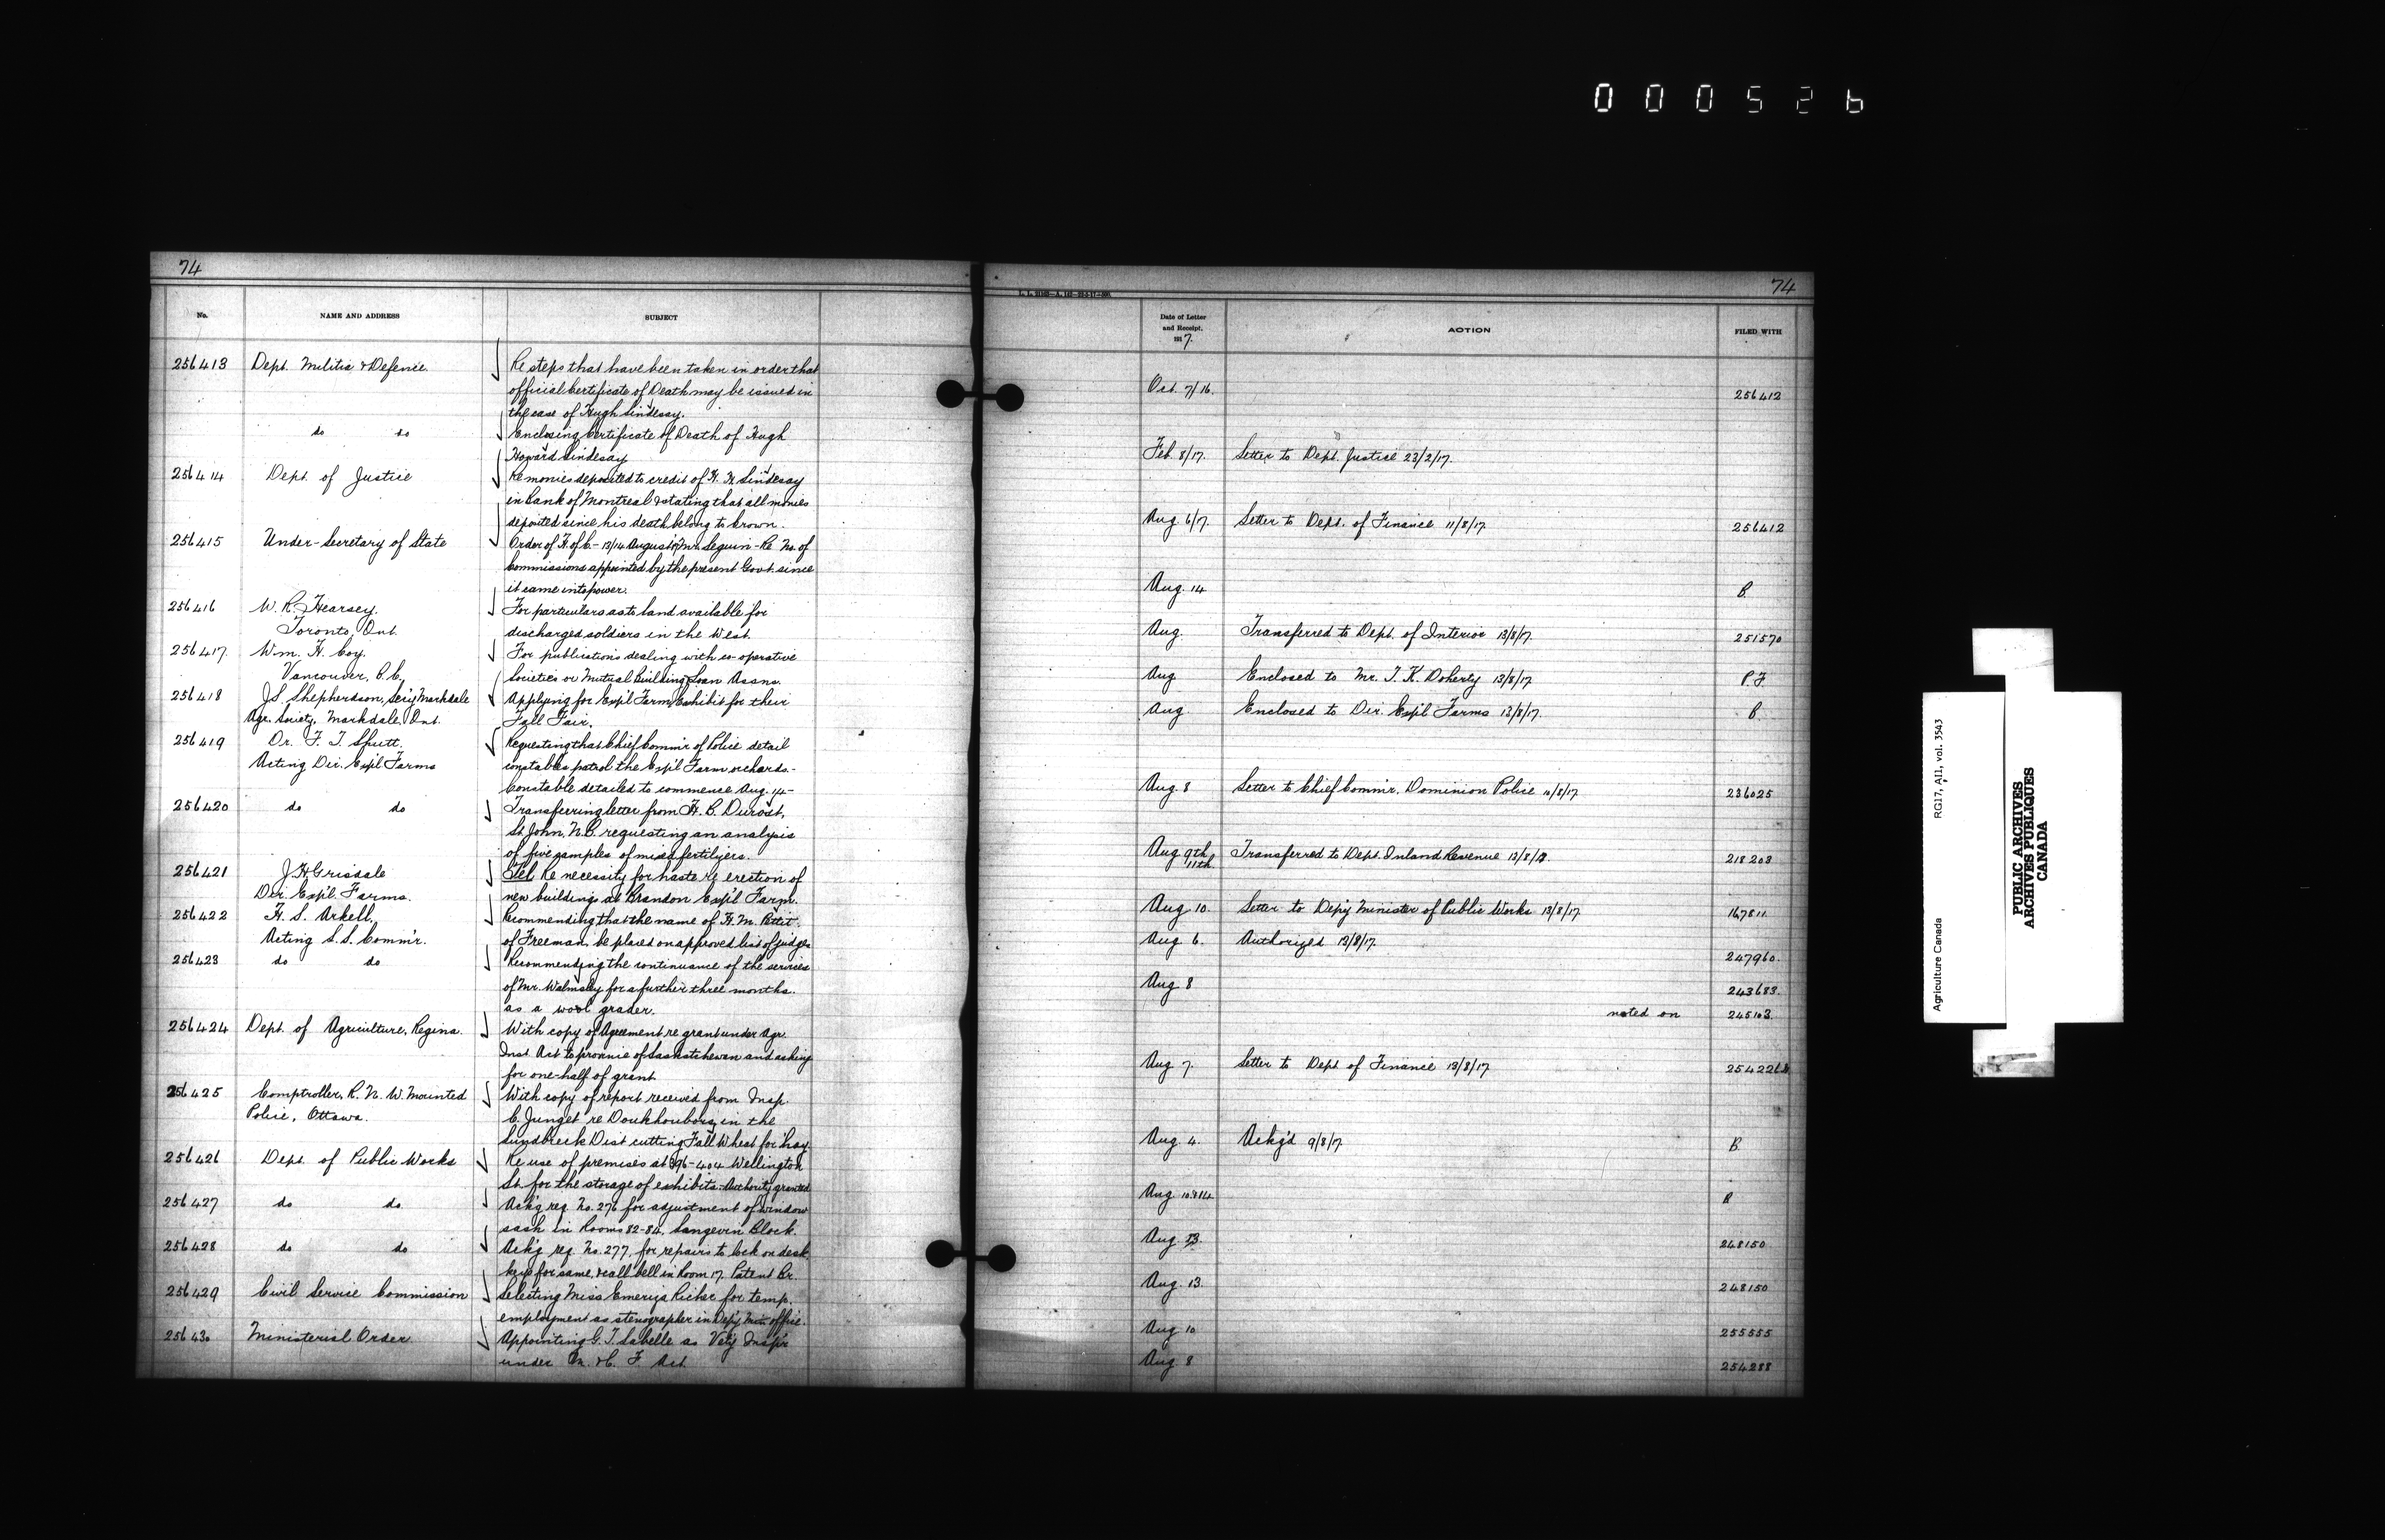 000526
74
No.
NAME AND ADDRESS
SUBJECT
256413 Dept. Militia & Defence. Re steps that have been taken in order that
official Certificate of Death may be issued in
the case of Hugh Lindesay.
do do Enclosing Certificate of Death of Hugh
Howard Lindesay
256414 Dept. of Justice Re monies deposited to credit of H. H. Lindesay
in Bank of Montreal & stating that all monies
deposited since his death belong to Crown.
256415 Under-Secretary of State Order of H. of C. - 13/14 August Mr. Seguin - Re No. of
Commissions appointed by the present Govt. since
it came into power.
256416 W. R. Hearsey. For particulars as to land available for
Toronto, Ont. discharged soldiers in the West.
256417. Wm. H. Coy. For publications dealing with co-operative
Vancouver, B.C. Societies or Mutual Building Loan Assns.
256418 J.S. Shepherdson, Sec'y Markdale Applying for Exp'l Farm Exhibit for their
Agr. Society, Markdale, Ont. Fall Fair.
256419 Dr. F. T. Shutt. Requesting that Chief Comm'r of Police detail
Acting Dir. Exp'l Farms constables patrol the Exp'l Farm orchards. -
Constable detailed to commence Aug. 14 -
256420 do do Transferring letter from H. B. Durost,
St. John, N.B. requesting an analysis
of five samples of mixed fertilizers.
256421 J H Grisdale Tel. Re necessity for haste re erection of
Dir. Exp'l. Farms. new buildings at Brandon Exp'l Farm.
256422 H. S. Arkell, Recommending that the name of H. M. Pettit
Acting L.S. Comm'r. of Freeman, be placed on approved list of judges
256423 do do Recommending the continuance of the services
of Mr. Walmsley for a further three months.
as a wool grader.
256424 Dept. of Agriculture, Regina. With copy of Agreement re grant under Agr.
Inst. Act to province of Saskatchewan and asking
for one-half of grant
256425 Comptroller, R. N. W. Mounted With copy of report received from Insp.
Police, Ottawa. C. Junget re Doukhoubors in the
Lundbreck Dist cutting Fall Wheat for hay
256426 Dept. of Public Works Re use of premises at 396-404 Wellington
St. for the storage of exhibits. Authority granted
256427 do do Ack'g req. No. 276 for adjustment of window
sash in Rooms 82-84, Langevin Block.
256428 do do Ack'g req. No. 277, for repairs to lock on desk,
keys for same, & call bell in Room 17. Patent Br.
256429 Civil Service Commission Selecting Miss Emeriza Richer for temp.
employment as stenographer in Dep'y Min. office.
256430 Ministerial Order. Appointing G. T. Labelle as Vet'y Insp'r
under M. & C. F. Act
74
Date of Letter
and Receipt.
1917.
ACTION
FILED WITH
Oct. 7/16. 256412
Feb. 8/17. Letter to Dept. Justice 23/2/17.
Aug. 6/7. Letter to Dept. of Finance 11/8/17 256412
Aug. 14 B.
Aug. Transferred to Dept. of Interior 13/8/17. 251570
Aug. Enclosed to Mr. T. K. Doherty 13/8/17 P.F.
Aug. Enclosed to Dir. Exp'l Farms 13/8/17. B.
Aug. 8 Letter to Chief Comm'r. Dominion Police 10/8/17 236025
Aug 9th
11th. Transferred to Dept. Inland Revenue 13/8/17. 218203
Aug 10. Letter to Dep'y Minister of Public Works 13/8/17 167811
Aug 6. Authorized 13/8/17.
247960.
Aug 8 243683.
noted on 245103.
Aug 7. Letter to Dept of Finance 13/8/17
Aug. 4. Ackg'd 9/8/17. B.
Aug. 10 & 14
Aug. 13. 248150
Aug. 13. 248150
Aug 10 255555
Aug 8 254288
Agriculture Canada RG17, A11, vol. 3543
PUBLIC ARCHIVES
ARCHIVES PUBLIQUES
CANADA